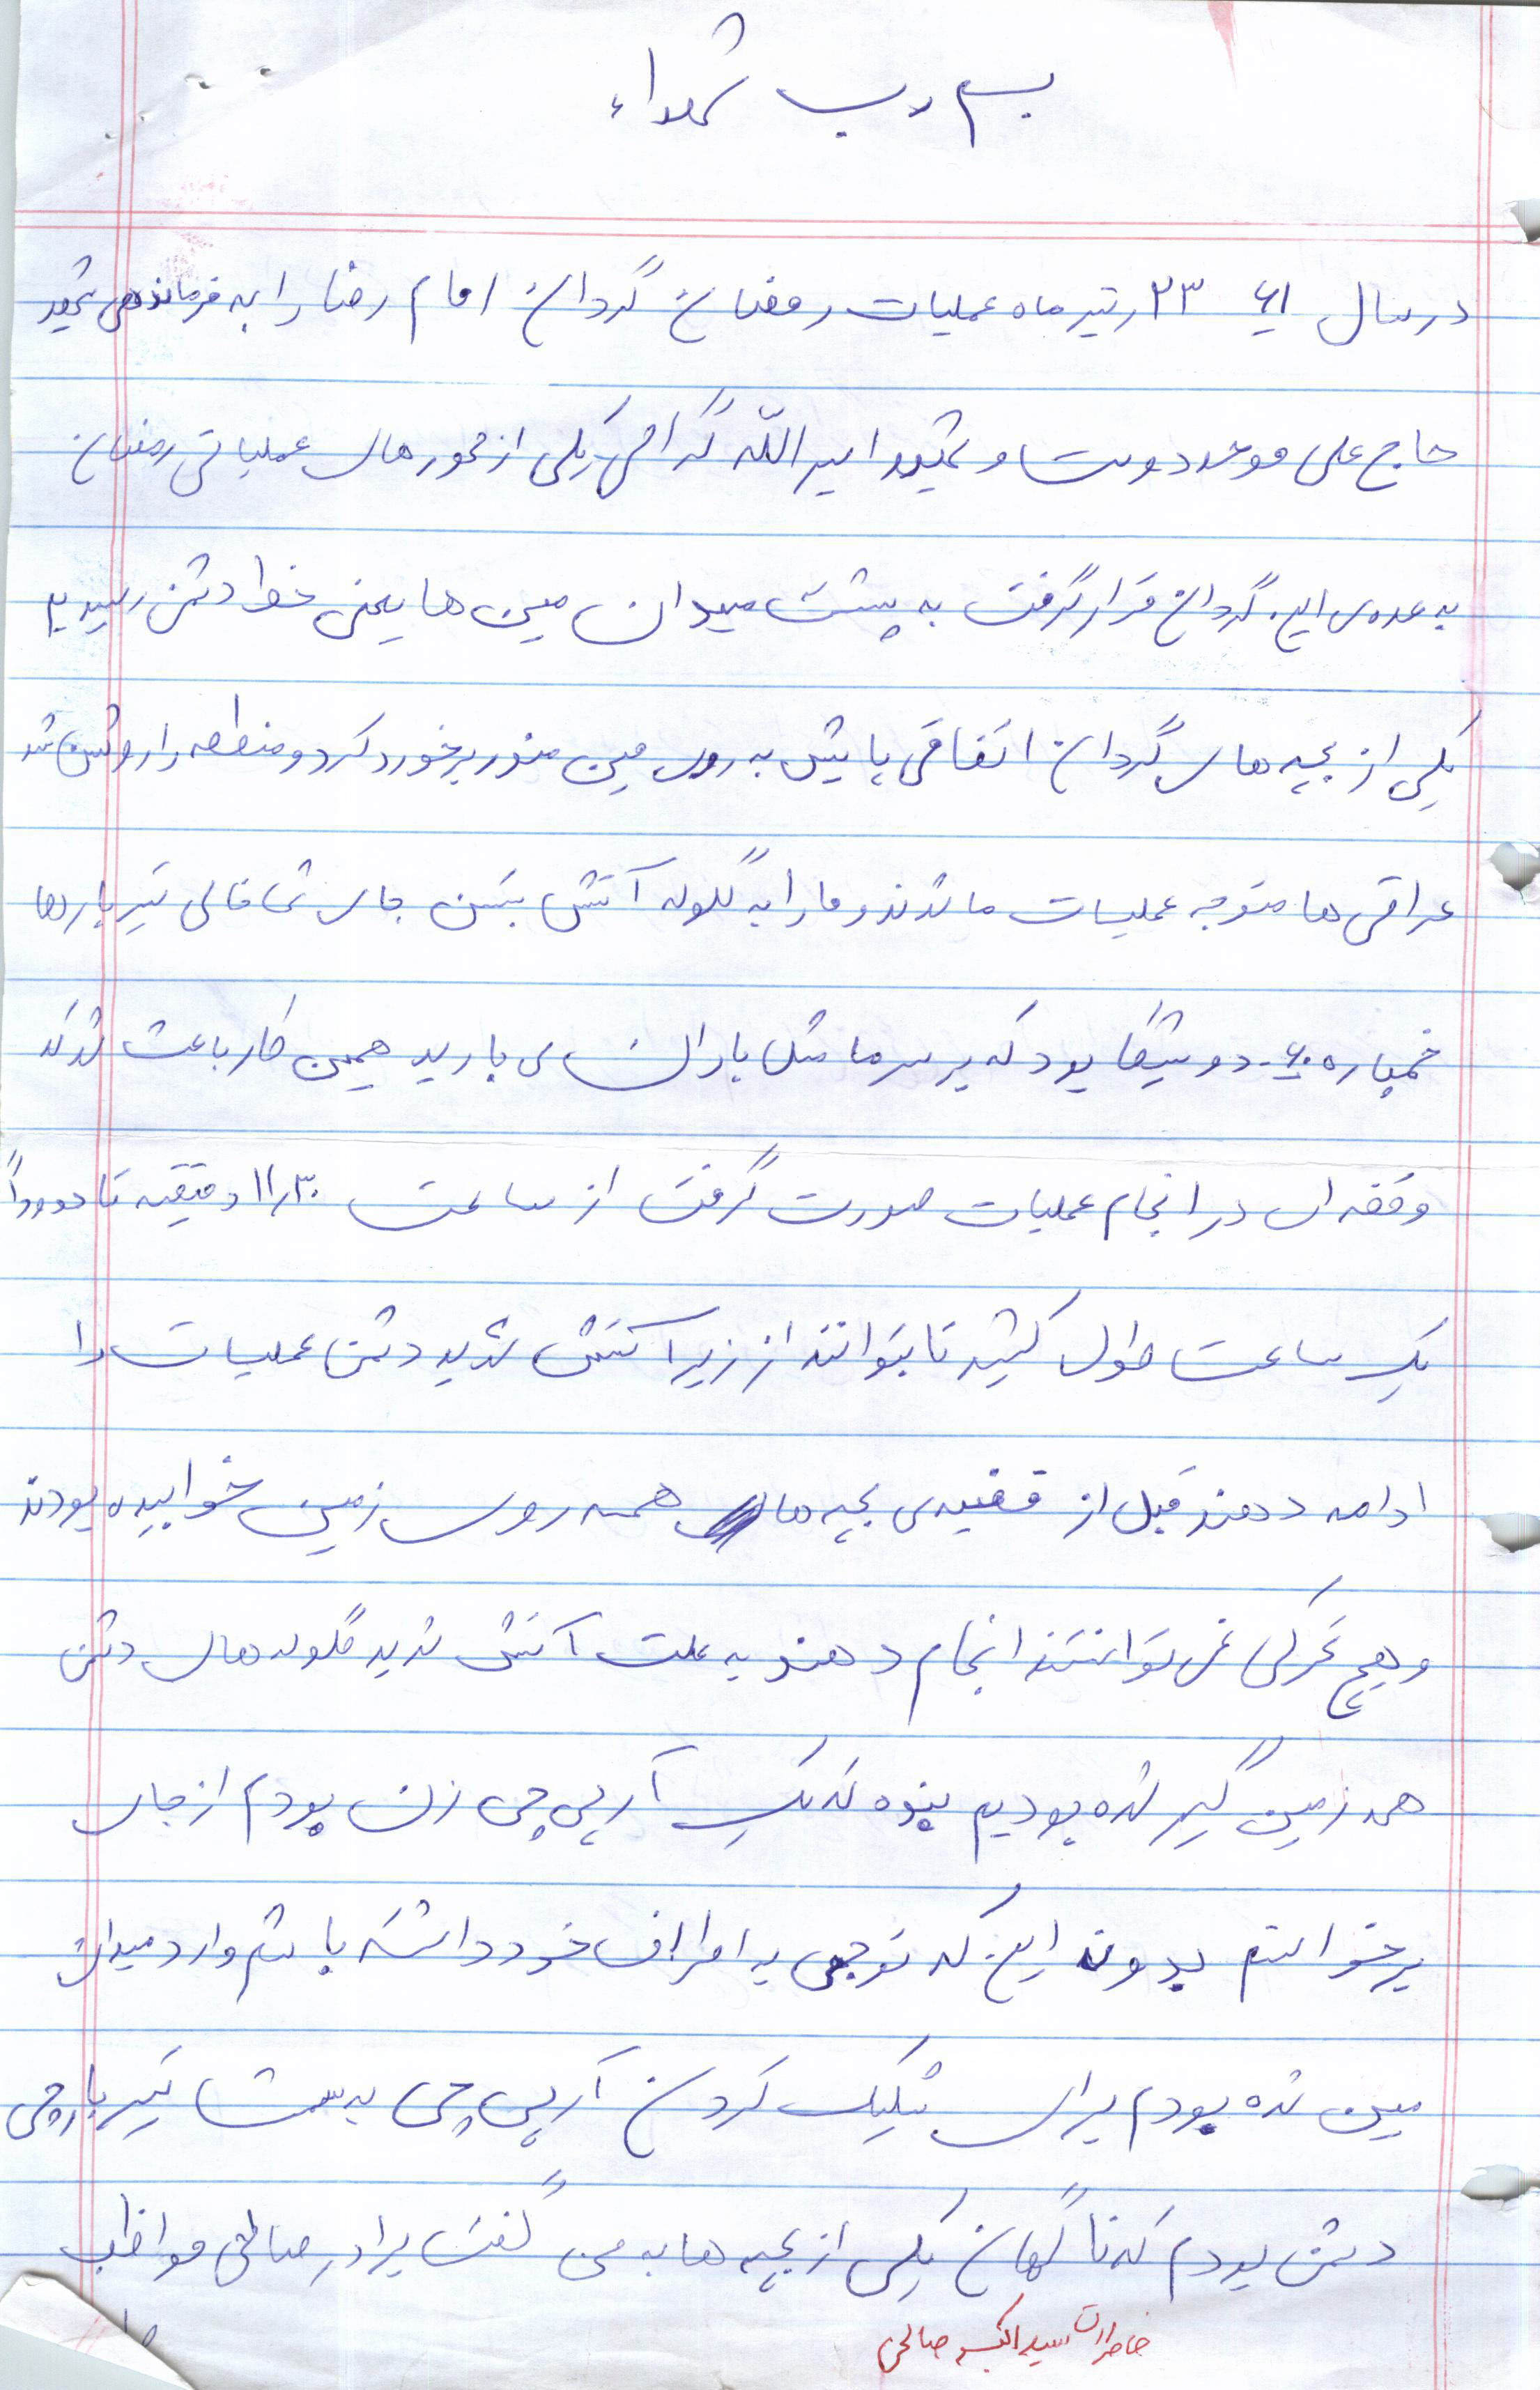 بسم رب شهداء
در سال ۶۱ ۲۳ تیر ماه عملیات رمضان گردان امام رضا را به فرماندهی شهید
حاج علی موحد دوست و شهید اسد الله گرامی یکی از محورهای عملیاتی رمضان
به عهده‌ی این گردان قرار گرفت به پشت میدان مین ها یعنی خط دشمن رسیدیم
یکی از بچه های گردان اتفاقی پایش به روی مین منور برخورد کرد و منطقه را روشن شد
عراقی ها متوجه عملیات ما شدند و ما را به گلوله آتش بستن جای شما خالی تیربارها
خمپاره ۶۰ دوشیکا بود که بر سر ما مثل باران می بارید همین کار باعث شد که
وقفه ای در انجام عملیات صورت گرفت از ساعت ۱۱/۳۰ دقیقه تا حدوداً
یک ساعت طول کشید تا بتوانند از زیر آتش شدید دشمن عملیات را
ادامه دهند قبل از قضیه‌ی بچه ها همه روی زمین خوابیده بودند
و هیچ تحرکی نمی توانستند انجام دهند به علت آتش شدید گلوله های دشمن
همه زمین گیر شده بودیم بنده که یک آرپی چی زن بودم از جای
برخواستم بدون این که توجهی به اطراف خود داشته باشم وارد میدان
مین شده بودم برای شلیک کردن آرپی چی به سمت تیربارچی
دشمن بودم که ناگهان یکی از بچه ها به من گفت برادر صالحی مواظب
خاطرات سید اکبر صالحی